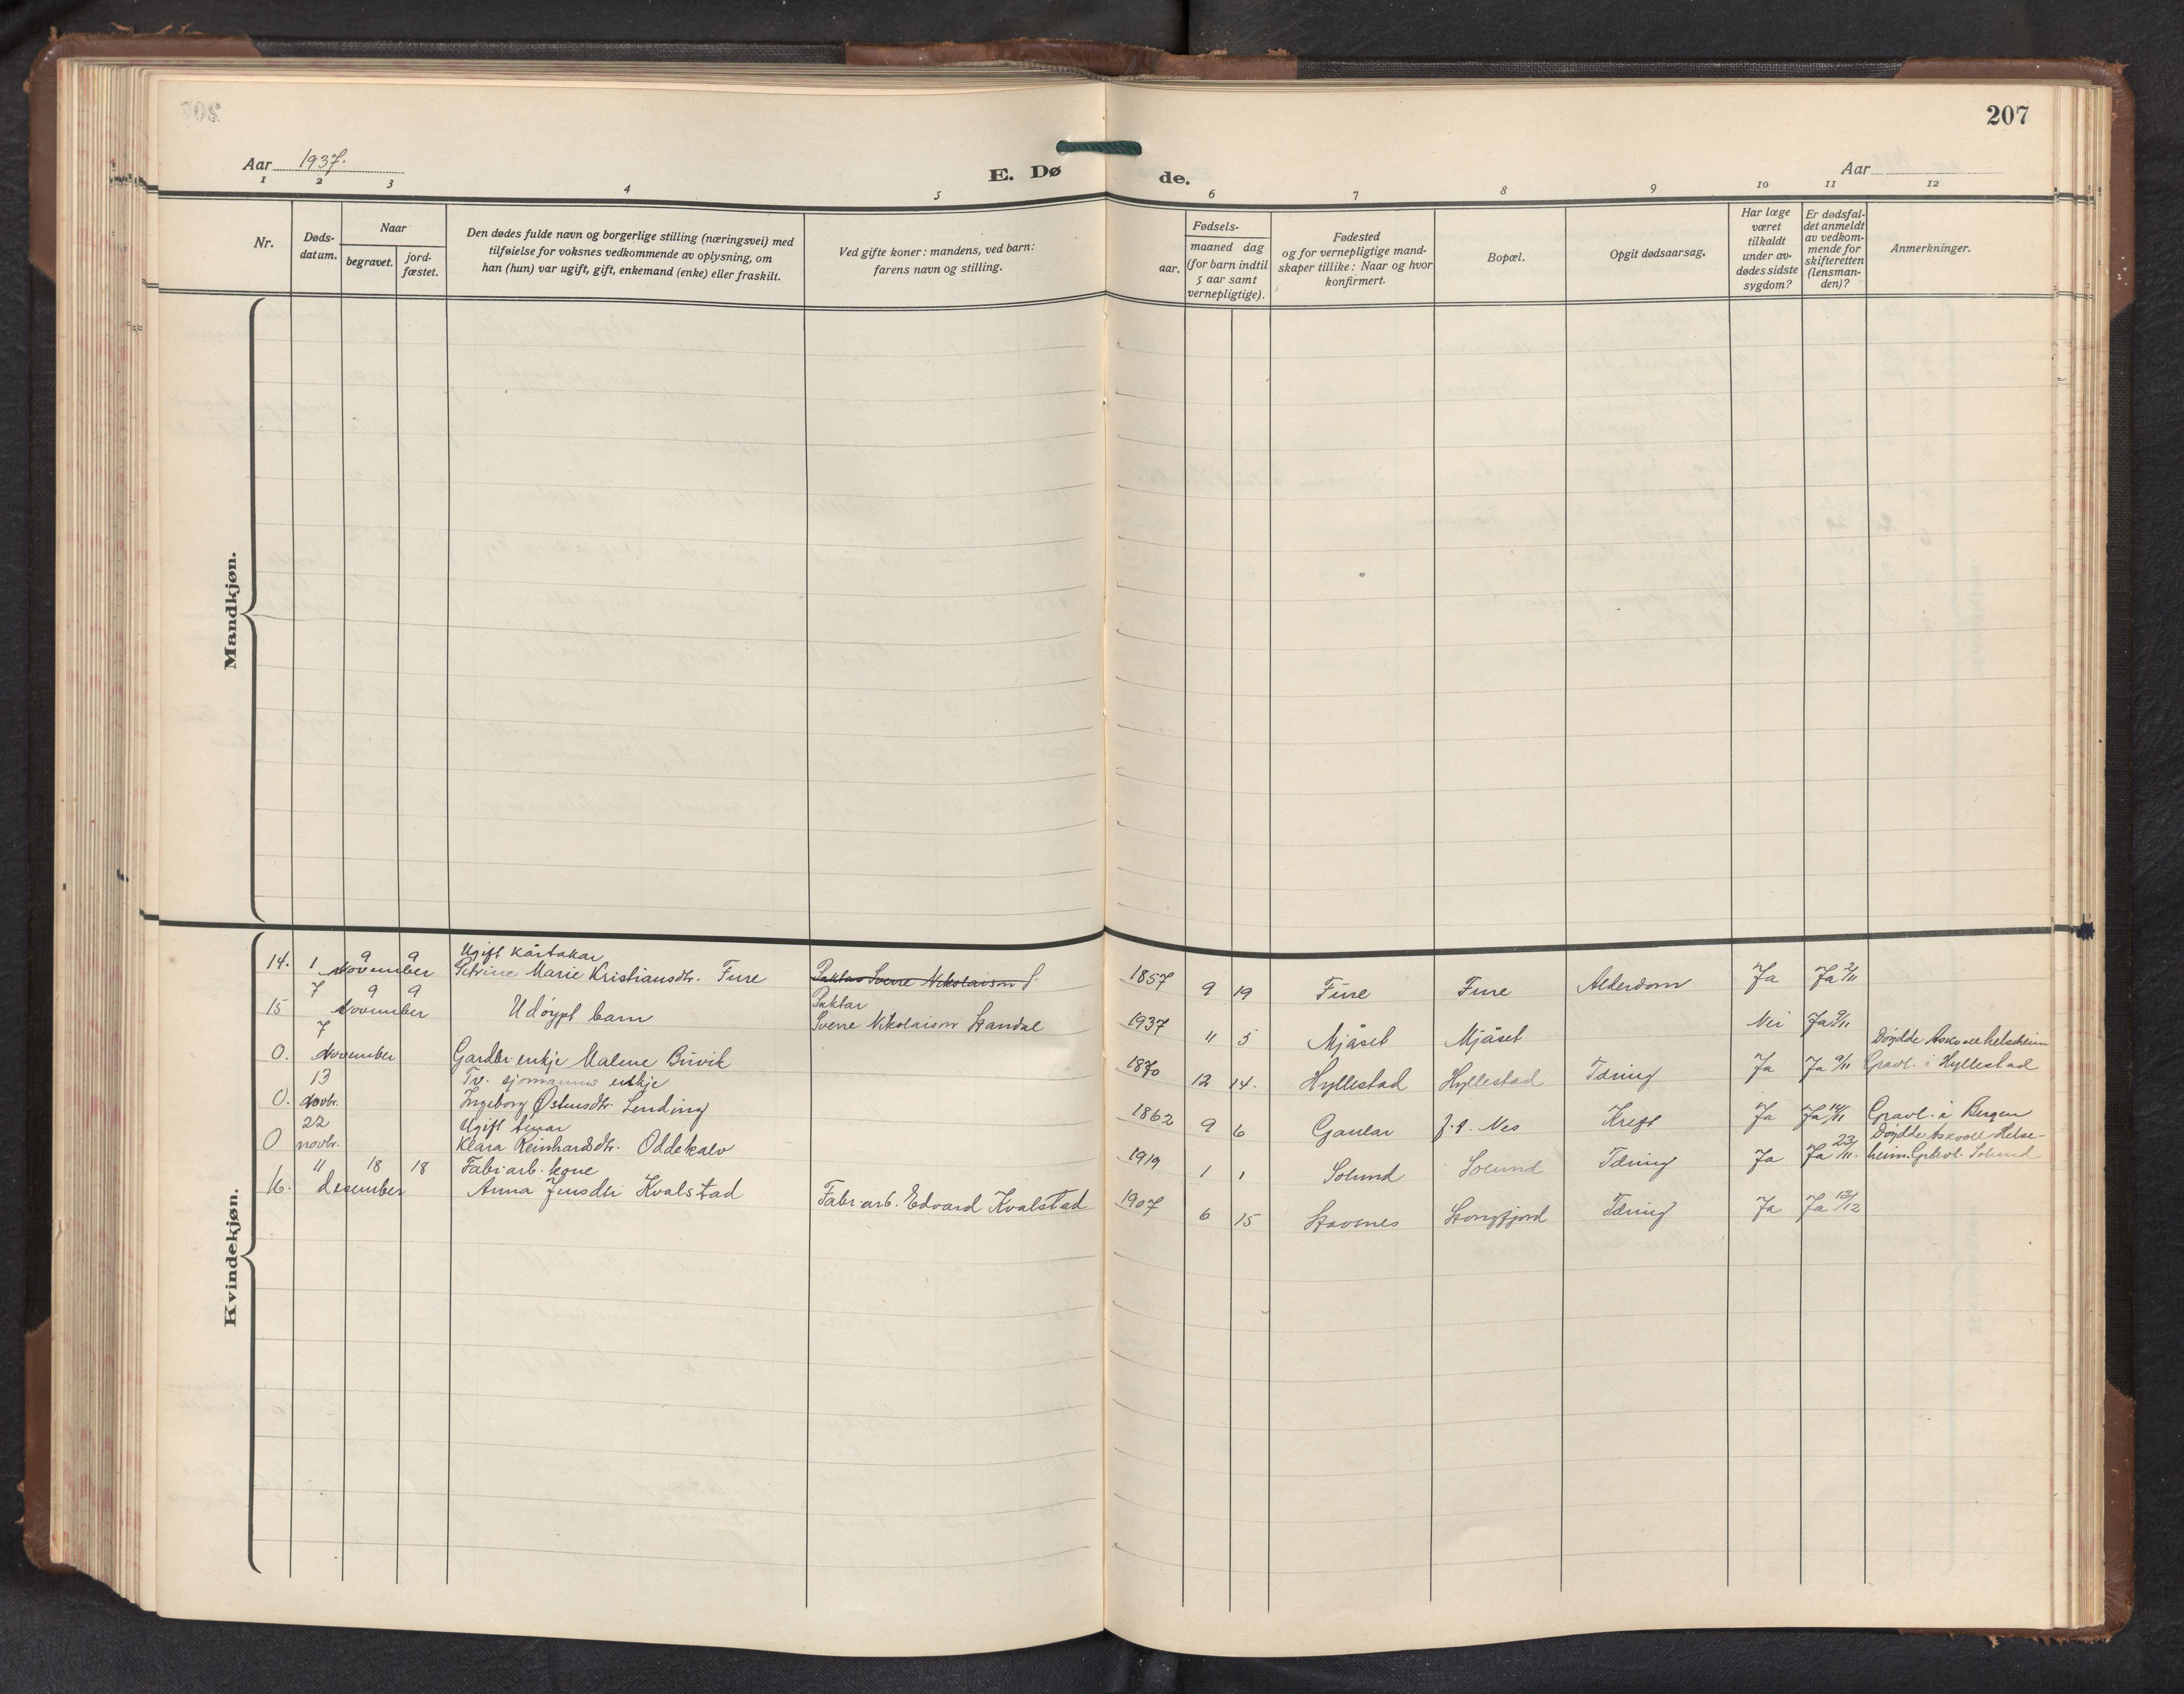 207
Aar 1937.
E. Døde.
Aar
1 2 3 4 5 6 7 8 9 10 11 12
Nr.
Døds-
datum.
Naar
begravet.
jord-
fæstet.
Den dødes fulde navn og borgerlige stilling (næringsvei) med
tilføielse for voksnes vedkommende av oplysning, om
han (hun) var ugift, gift, enkemand (enke) eller fraskilt.
Ved gifte koner: mandens, ved barn:
farens navn og stilling.
Fødsels-
aar.
maaned dag
(for barn indtil
5 aar samt
vernepligtige).
Fødested
og for vernepligtige mand-
skaper tillike: Naar og hvor
konfirmert.
Bopæl.
Opgit dødsaarsag.
Har læge
været
tilkaldt
under av-
dødes sidste
sygdom?
Er dødsfal-
det anmeldt
av vedkom-
mende for
skifteretten
(lensman-
den)?
Anmerkninger.
Mandkjøn.
Kvindekjøn.
Ugift kårtakar
14. 1 9 9 november Petrine Marie Kristiansdtr. Fure Paktar Sverre Nikolaison S 1857 9 19 Fure Fure Alderdom Ja Ja 2/11
Paktar
15 7 9 9 november Udøypt barn Sverre Nikolaison Standal 1937 11 5 Mjåset Mjåset Nei Ja 9/11
Døydde Askvoll helseheim
0. 7 november Gardbr. enkje Malene Buvik 1870 12 14. Hyllestad Hyllestad Tæring Ja Ja 9/11 Gravl. i Hyllestad
Tv. sjømanns enkje
0. 13 novbr. Ingeborg Østensdtr. Lending 1862 9 6 Gaular Nes Kreft Ja Ja 14/11 Gravl. i Bergen
Ugift tenar
Døydde Askvoll Helse-
0 22 novbr. Klara Reinhardsdtr. Oddekalv 1919 1 1 Solund Solund Tæring Ja Ja 23/11. heim. Gravl. Solund
Fabr. arb. kone
16. 11 18 18 desember Anna Jensdtr Kvalstad Fabr. arb. Edvard Kvalstad 1907 6 15 Stavsnes Stongfjord Tæring Ja Ja 13/12